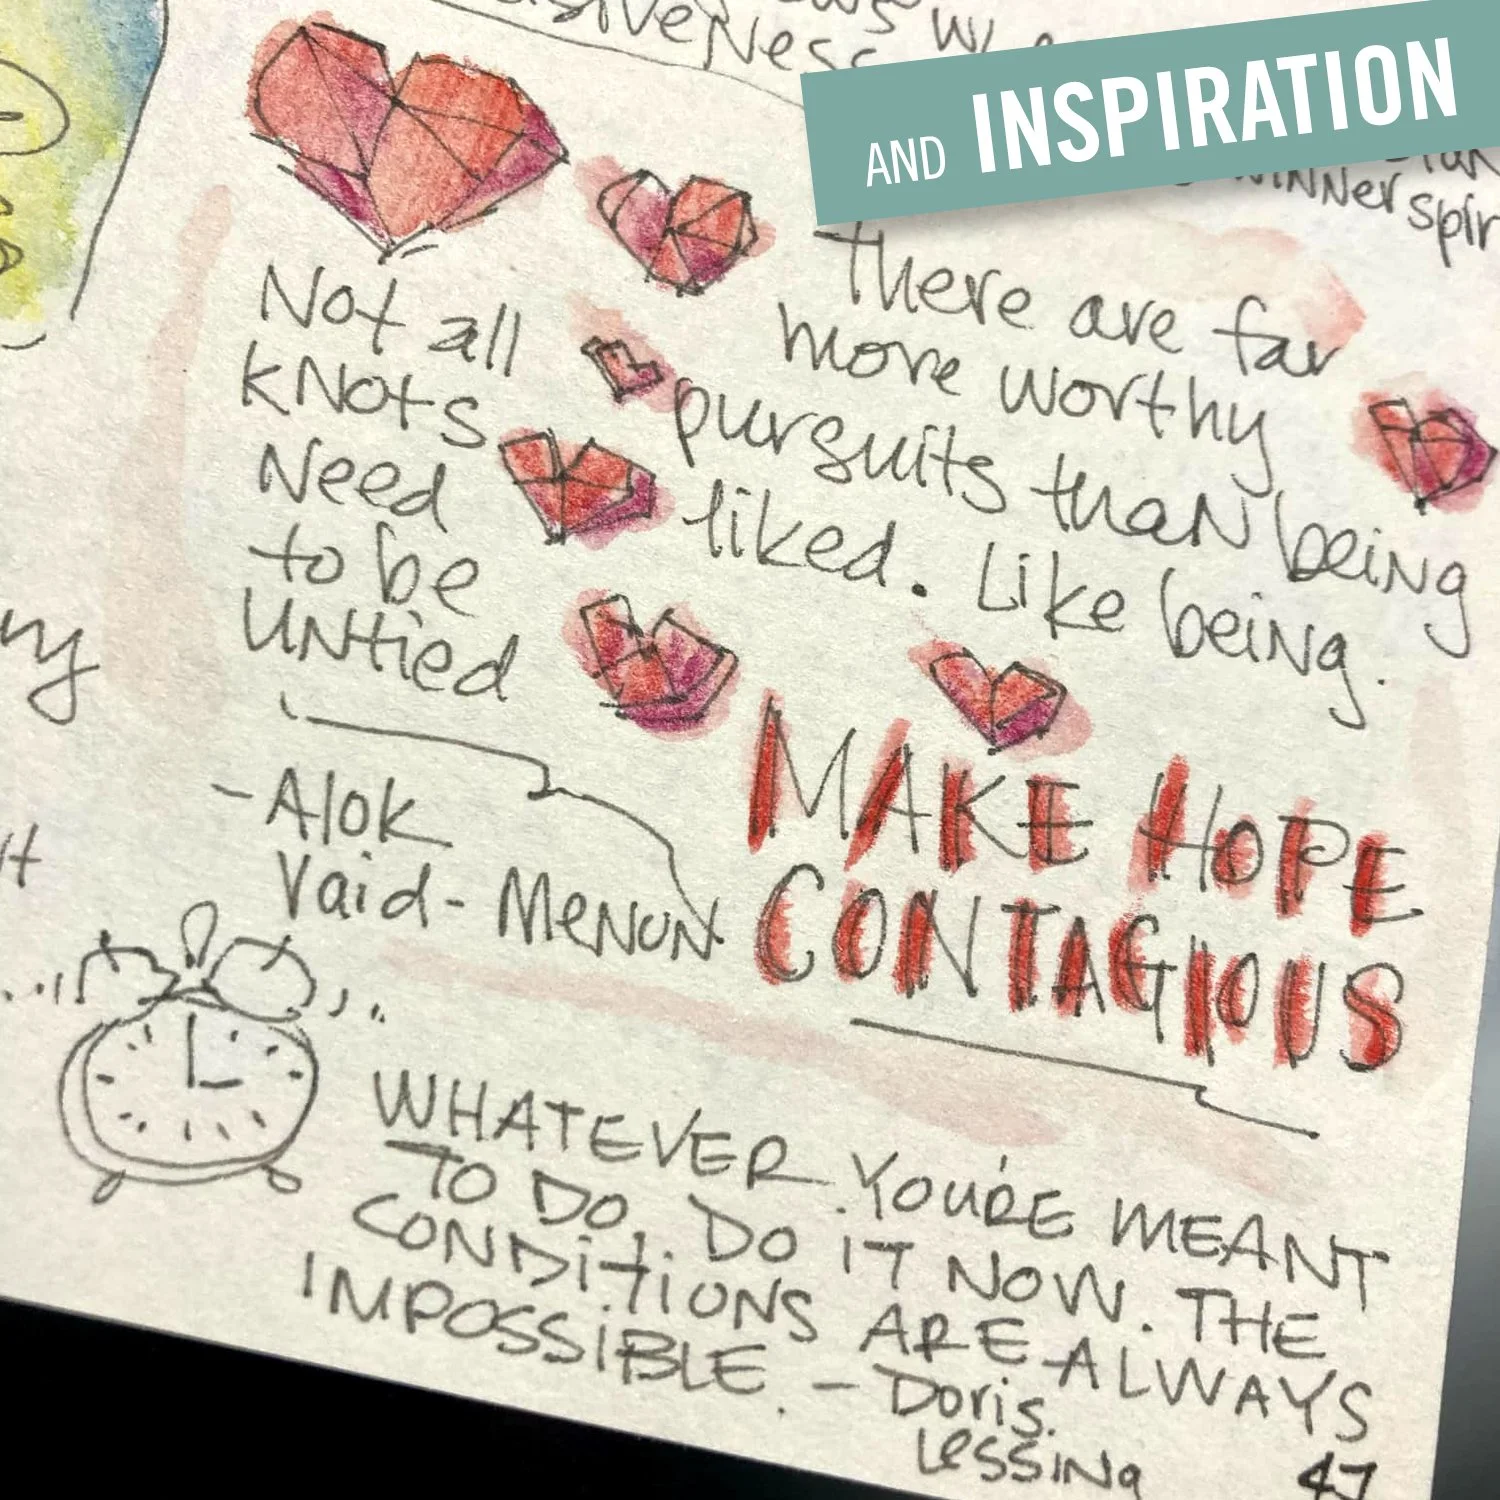 AND INSPIRATION
Not all
knots
Need
to be
Untied
- Alok
Vaid-Menon
There are far
more worthy
pursuits than being
liked. Like being.
MAKE HOPE
CONTAGIOUS
WHATEVER YOU'RE MEANT
TO DO, DO IT NOW. THE
CONDITIONS ARE ALWAYS
IMPOSSIBLE. - Doris
Lessing
47